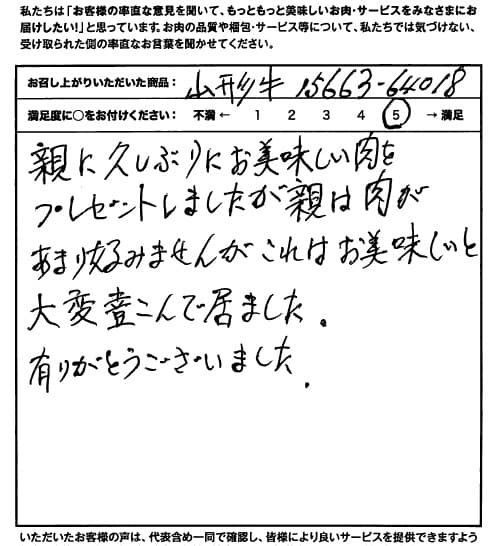 私たちは「お客様の率直な意見を聞いて、もっともっと美味しいお肉・サービスをみなさまにお
届けしたい!」と思っています。お肉の品質や梱包・サービス等について、私たちでは気づけない、
受け取られた側の率直なお言葉を聞かせてください。
お召し上がりいただいた商品： 山形牛 15663-64018
満足度に○をお付けください： 不満 ← 1 2 3 4 5 → 満足
親に久しぶりにお美味しい肉を
プレゼントしましたが親は肉が
あまり好みませんがこれはお美味しいと
大変喜こんで居ました。
有りがとうございました。
いただいたお客様の声は、代表含め一同で確認し、皆様により良いサービスを提供できますよう